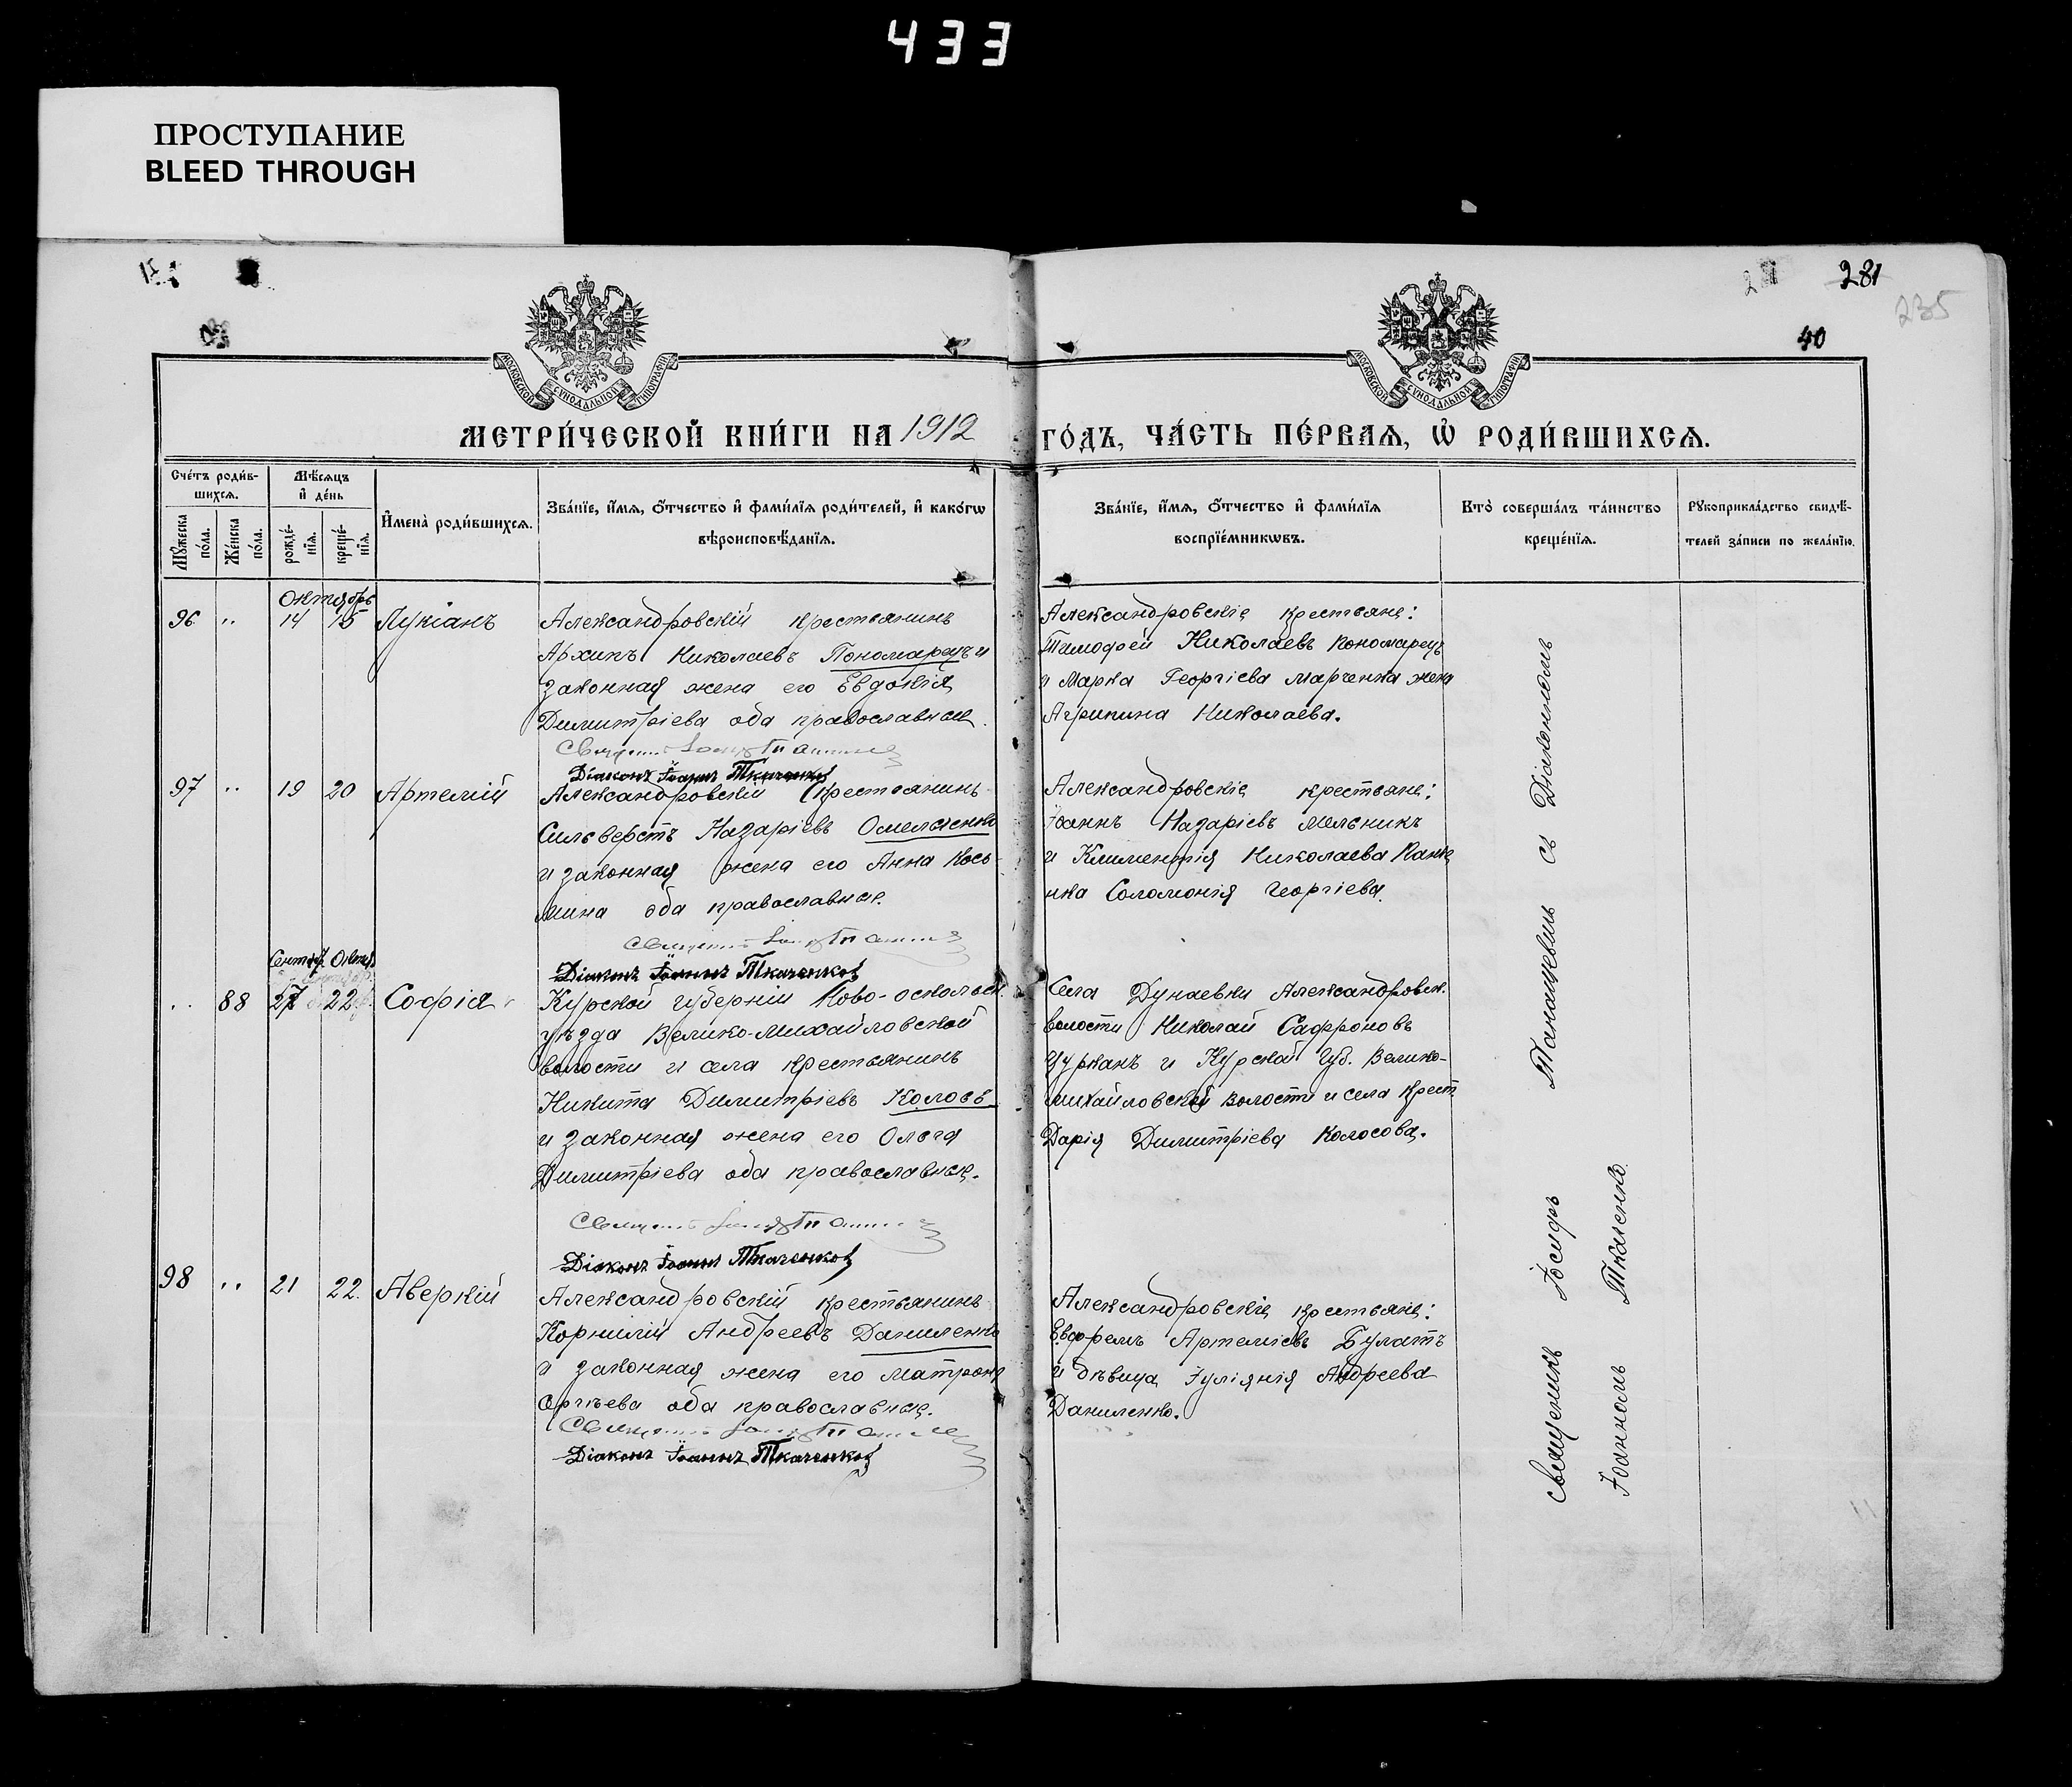 433
ПРОСТУПАНИЕ
BLEED THROUGH
281
235
40
МОСКОВСКОЙ СУНОДАЛЬНОЙ ТИПОГРАФІИ
МОСКОВСКОЙ СУНОДАЛЬНОЙ ТИПОГРАФІИ
МЕТРИ́ЧЕСКОЙ КНИ́ГИ НА 1912 ГО́ДЪ, ЧА́СТЬ ПЕ́РВАѦ, Ѡ РОДИ́ВШИХСѦ.
Сче́тъ роди́в-
шихсѧ.
Мꙋжеска по́ла.
Же́нска по́ла.
Мѣ́сѧцъ
и де́нь
рожде́-
нїѧ.
креще́-
нїѧ.
Имена̀ роди́вшихсѧ.
Зва́нїе, и́мѧ, ѻ́тчество и фами́лїѧ роди́телей, и како́гѡ
вѣроисповѣ́данїѧ.
Зва́нїе, и́мѧ, ѻ́тчество и фами́лїѧ
воспрїе́мникѡвъ.
Кто̀ соверша́лъ та́инство
креще́нїѧ.
Рꙋкоприкла́дство свидѣ́-
телей за́писи по жела́нїю.
Октябрь
96 " 14 15 Лукіанъ
Александровскій крестьянинъ
Архипъ Николаевъ Пономарецъ и
законная жена его Евдокія
Димитріева оба православные.
Діаконъ Іоаннъ Ткаченковъ
Александровскіе крестьяне:
Тимофей Николаевъ Пономарецъ
и Марка Георгіева Марченка жена
Агрипина Николаева.
97 " 19 20 Артемій
Александровскій крестьянинъ
Сильверстъ Назаріевъ Омельченко
и законная жена его Анна Кось-
мина оба православные.
Діаконъ Іоаннъ Ткаченковъ
Александровскіе крестьяне:
Іоаннъ Назаріевъ Мельникъ
и Климентія Николаева
Соломонія Георгіева.
Сентяб. Октяб.
" 88 27 22 Софія
Курской губерніи Ново-оскольск.
уѣзда Велико-Михайловской
волости и села крестьянинъ
Никита Димитріевъ
и законная жена его Ольга
Димитріева оба православные.
Діаконъ Іоаннъ Ткаченковъ
Села Дунаевки Александровск.
волости Николай Сафроновъ
Цурканъ и Курской Губ. Велико-
михайловской волости и села Крест.
Дарія Димитріева Колосова.
98 " 21 22. Аверкій
Александровскій крестьянинъ
Корнилій Андреевъ Даниленко
и законная жена его Матрона
Сергѣева оба православные.
Діаконъ Іоаннъ Ткаченковъ
Александровскіе крестьяне:
Евфремъ Артеміевъ Булатъ
и дѣвица Іуліянія Андреева
Даниленко.
Священникъ Іосифъ Танащевичъ съ Діакономъ
Іоанномъ Ткаченко.